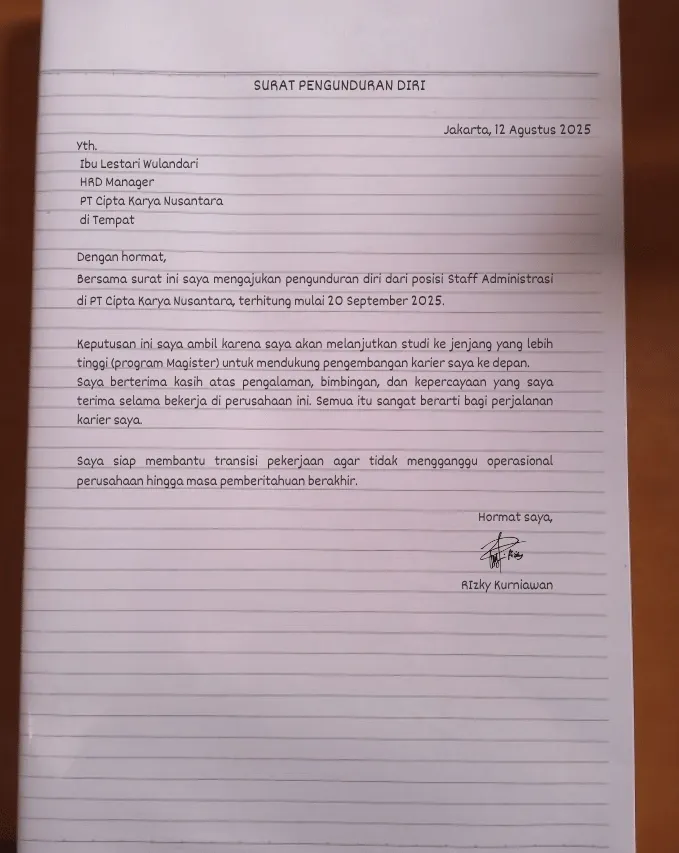 SURAT PENGUNDURAN DIRI
Jakarta, 12 Agustus 2025
Yth.
Ibu Lestari Wulandari
HRD Manager
PT Cipta Karya Nusantara
di Tempat
Dengan hormat,
Bersama surat ini saya mengajukan pengunduran diri dari posisi Staff Administrasi
di PT Cipta Karya Nusantara, terhitung mulai 20 September 2025.
Keputusan ini saya ambil karena saya akan melanjutkan studi ke jenjang yang lebih
tinggi (program Magister) untuk mendukung pengembangan karier saya ke depan.
Saya berterima kasih atas pengalaman, bimbingan, dan kepercayaan yang saya
terima selama bekerja di perusahaan ini. Semua itu sangat berarti bagi perjalanan
karier saya.
Saya siap membantu transisi pekerjaan agar tidak mengganggu operasional
perusahaan hingga masa pemberitahuan berakhir.
Hormat saya,
RIzky Kurniawan